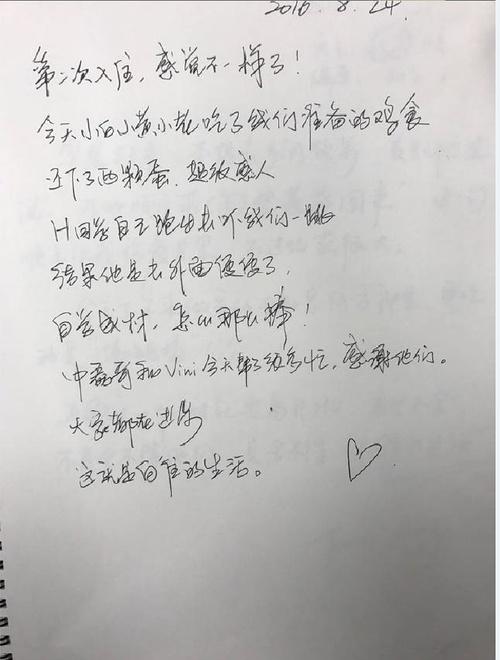 2016. 8. 24.
第二次入住,感觉不一样了!
今天小白小黄小花吃了我们准备的鸡食
还下了两颗蛋.超级感人
H同学自己跑出去吓我们一跳
结果他是去外面便便了,
自学成材,怎么那么棒!
中磊哥和Vini今天帮了很多忙,感谢他们。
大家都在进步
这就是向往的生活。